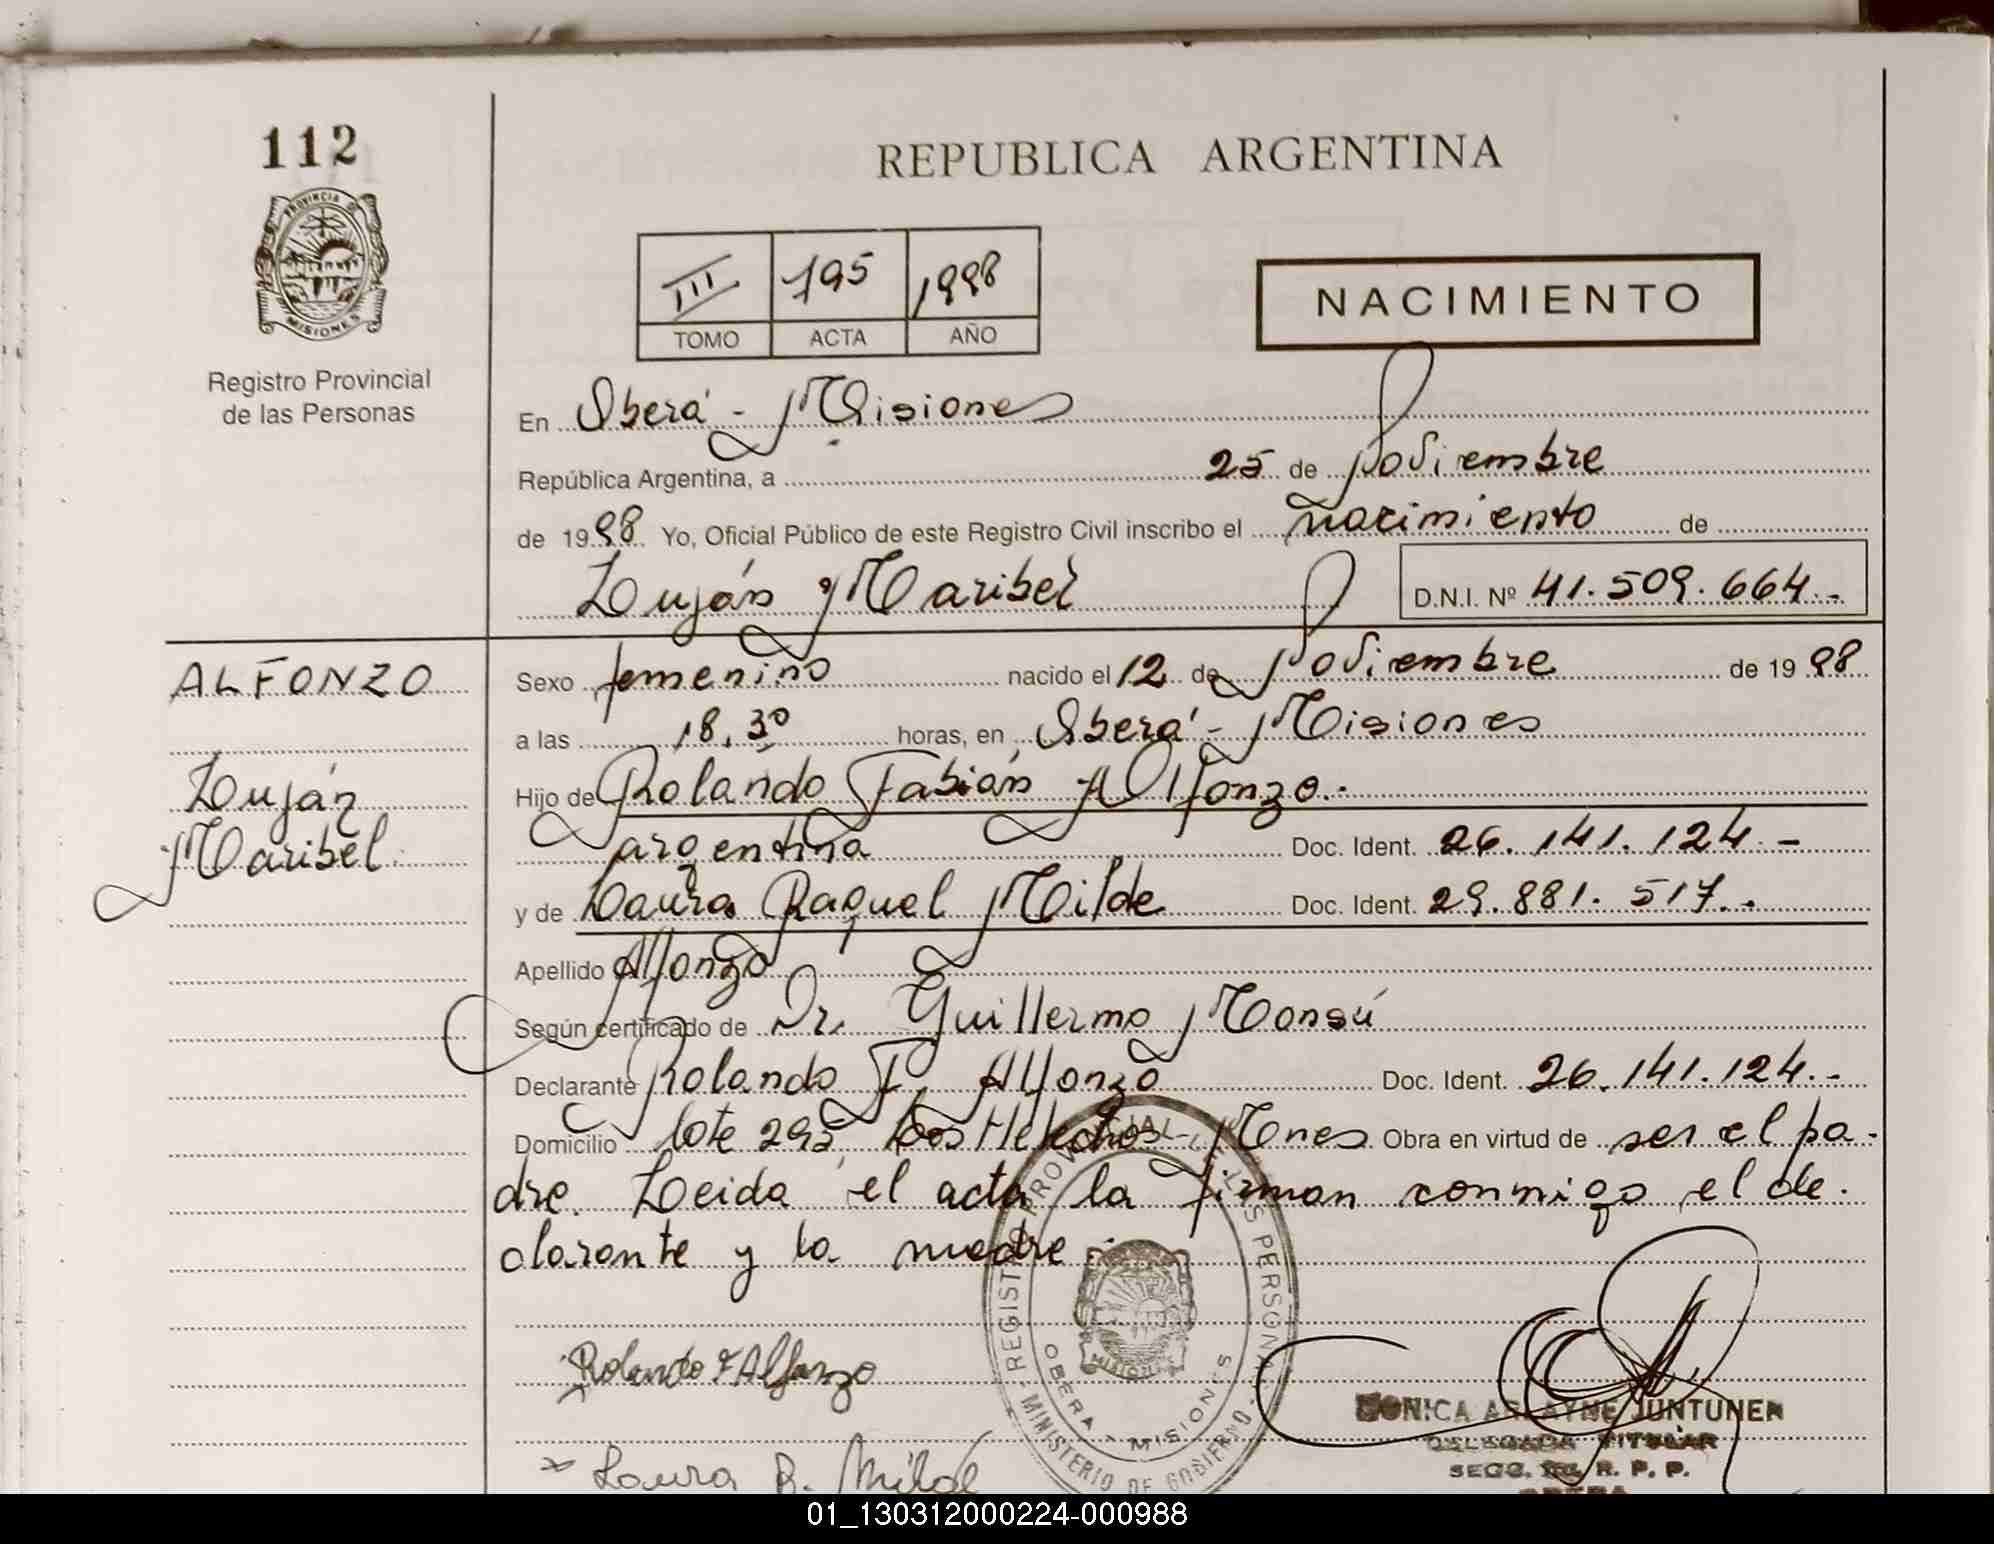 112
REPUBLICA ARGENTINA
PROVINCIA DE
MISIONES
Registro Provincial
de las Personas
III 795 1998
TOMO ACTA AÑO
NACIMIENTO
En Oberá - Misiones
República Argentina, a 25 de Noviembre
de 1998 Yo, Oficial Público de este Registro Civil inscribo el nacimiento de
Luján Maribel D.N.I. Nº 41.509.664.-
ALFONZO
Luján
Maribel
Sexo femenino nacido el 12 de Noviembre de 1998
a las 18.30 horas, en Oberá - Misiones
Hijo de Rolando Fabián Alfonzo.-
argentina Doc. Ident. 26.141.124.-
y de Laura Raquel Milde Doc. Ident. 29.881.517.-
Apellido Alfonzo
Según certificado de Dr. Guillermo Monsú
Declarante Rolando F. Alfonzo Doc. Ident. 26.141.124.-
Domicilio lote 293, Los Helechos - Mnes Obra en virtud de ser el pa-
dre. Leida el acta la firman conmigo el de-
clarante y la madre.-
REGISTRO PROVINCIAL DE LAS PERSONAS
MINISTERIO DE GOBIERNO
OBERA - MISIONES
MISIONES
Rolando F Alfonzo
Laura R. Milde
MONICA JUNTUNEN
DELEGADA TITULAR
SECC. R. P. P.
OBERA
01_130312000224-000988